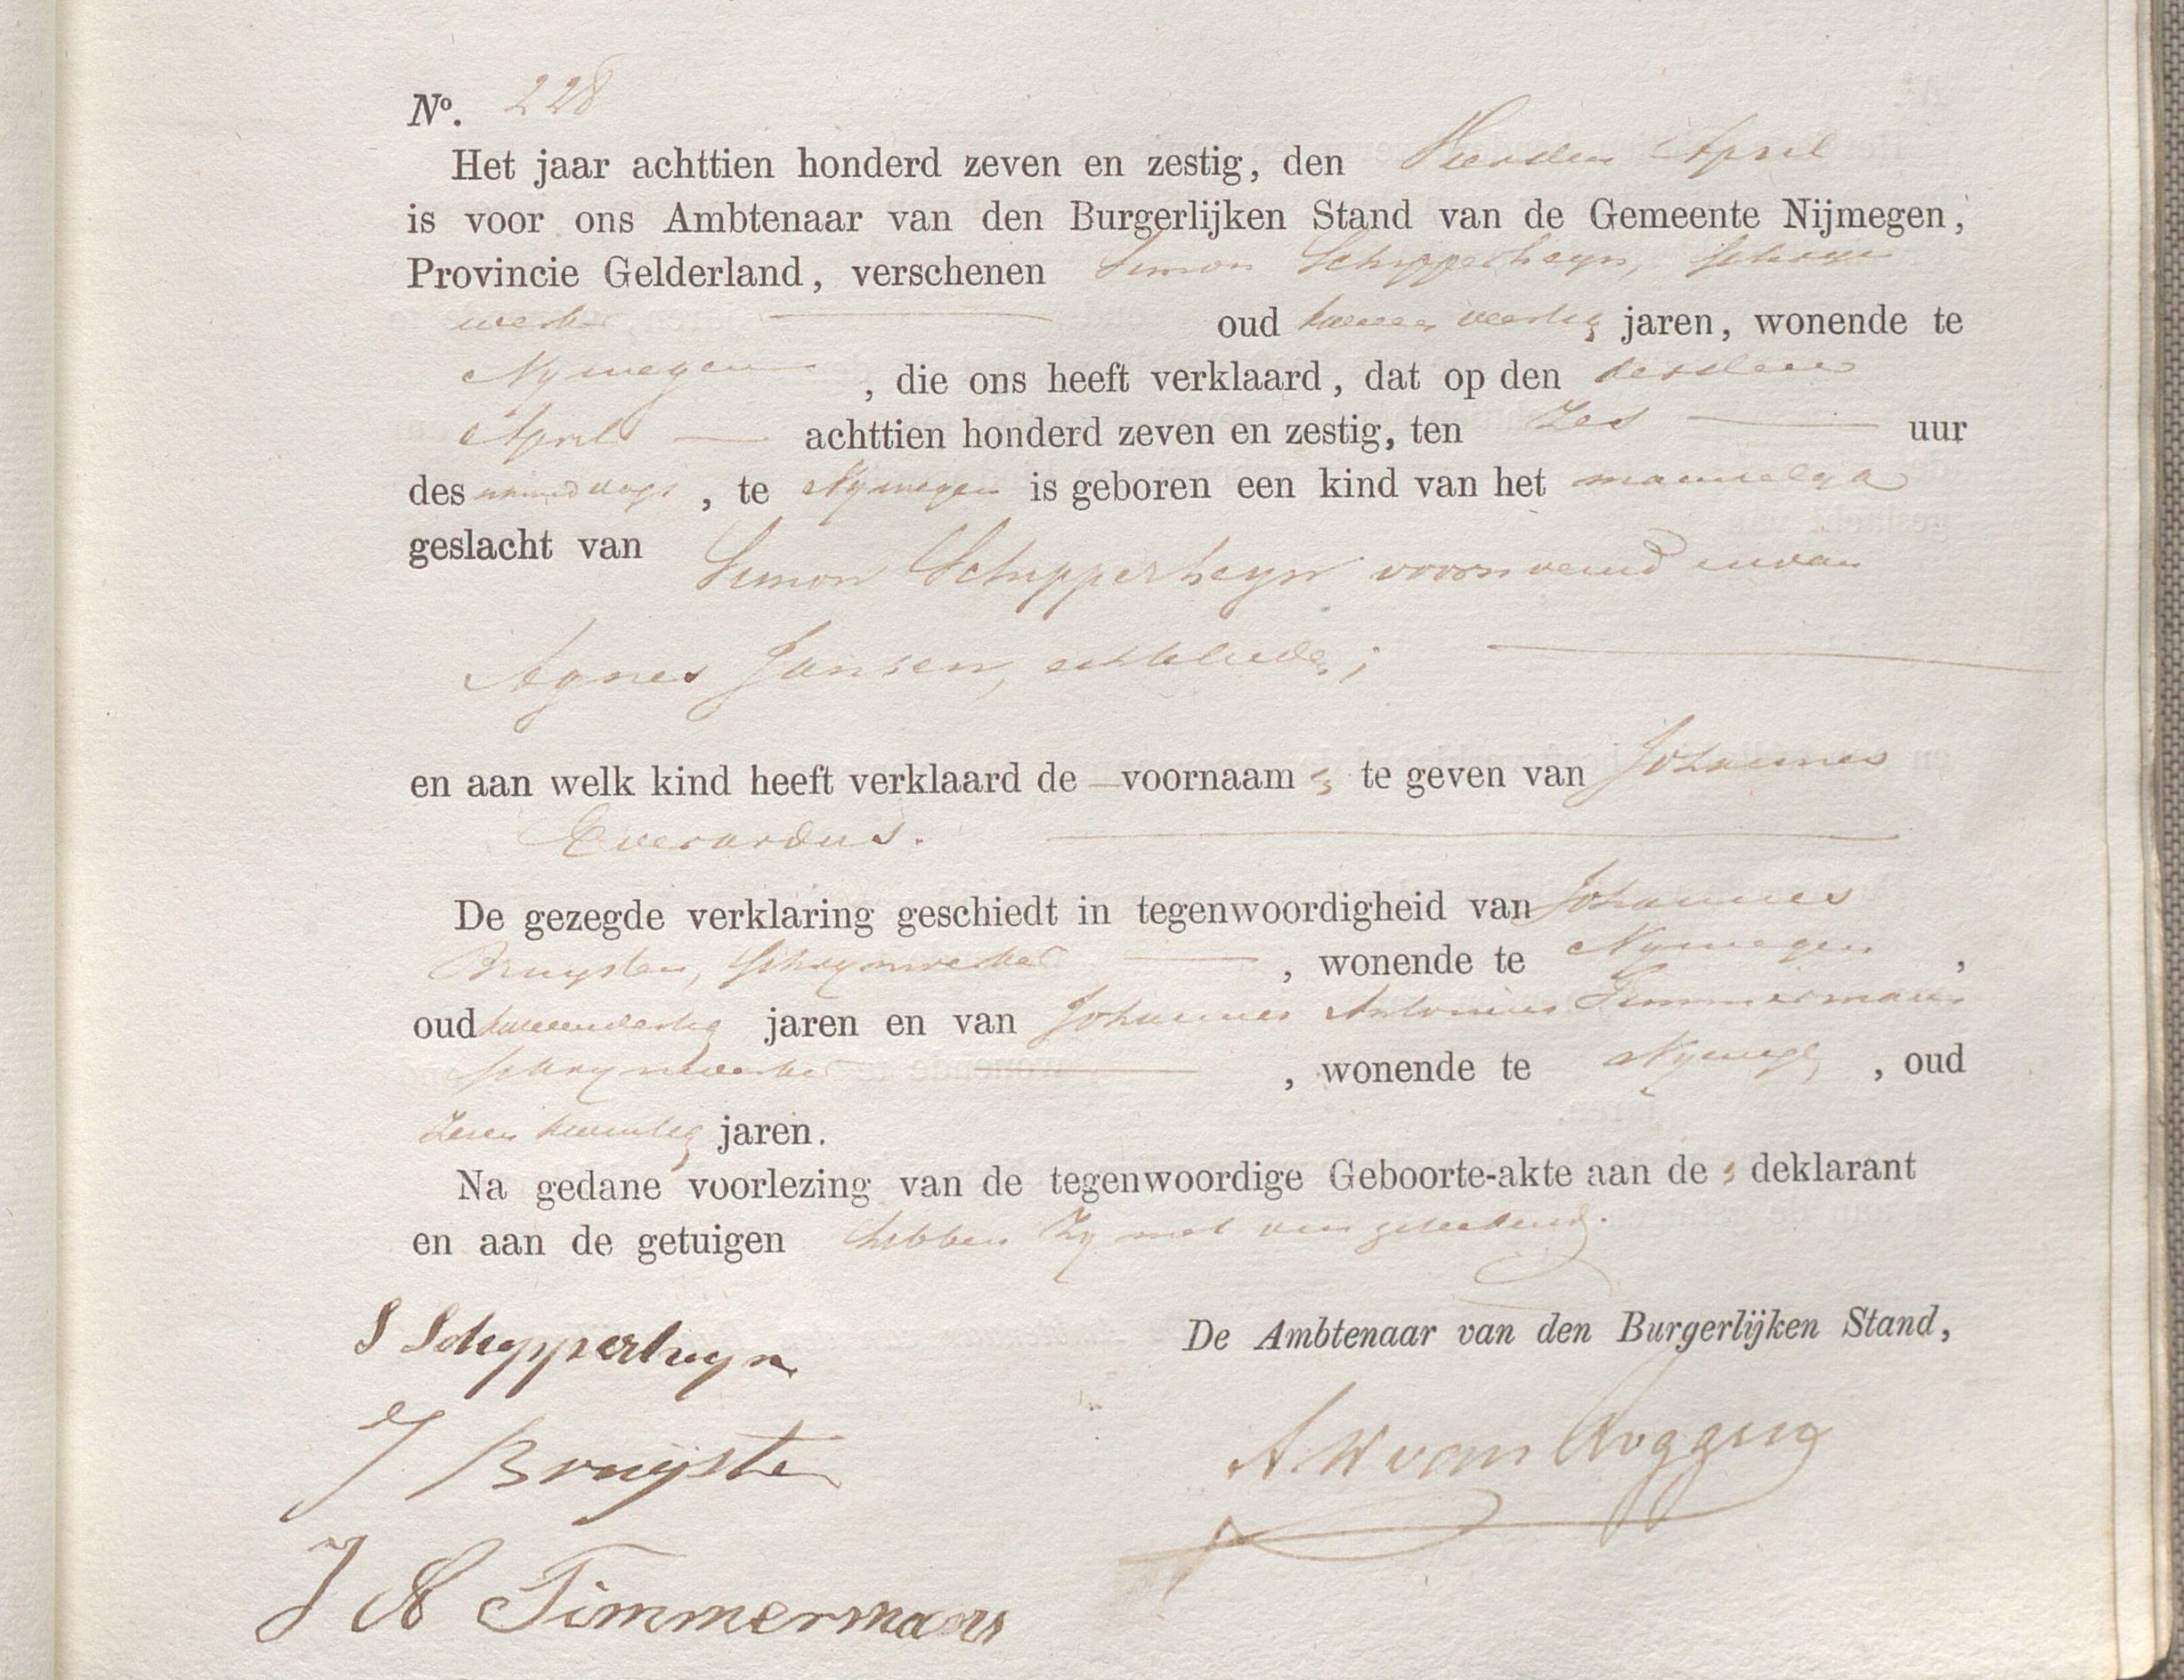 Nº. 228
Het jaar achttien honderd zeven en zestig, den Vierden April
is voor ons Ambtenaar van den Burgerlijken Stand van de Gemeente Nijmegen,
Provincie Gelderland, verschenen Simon Schipperheyn, schryn
werker oud veertig jaren, wonende te
Nymegen, die ons heeft verklaard, dat op den derden
April achttien honderd zeven en zestig, ten Zes uur
des namiddags, te Nymegen is geboren een kind van het mannelyk
geslacht van Simon Schipperheyn voornoemd en van
Agnes Jansen, echtelieden;
en aan welk kind heeft verklaard de voornaam s te geven van Johannes
Everardus.
De gezegde verklaring geschiedt in tegenwoordigheid van Johannes
Bruysten, Schrynwerker, wonende te Nymegen,
oud jaren en van Johannes Antonius Timmermans
schrynwerker, wonende te Nymegen, oud
Zeven twintig jaren.
Na gedane voorlezing van de tegenwoordige Geboorte-akte aan de s deklarant
en aan de getuigen hebben Zy met ons geteekend.
S Schypperheyn
De Ambtenaar van den Burgerlijken Stand,
J Bruysten
A W van
J A Timmermans